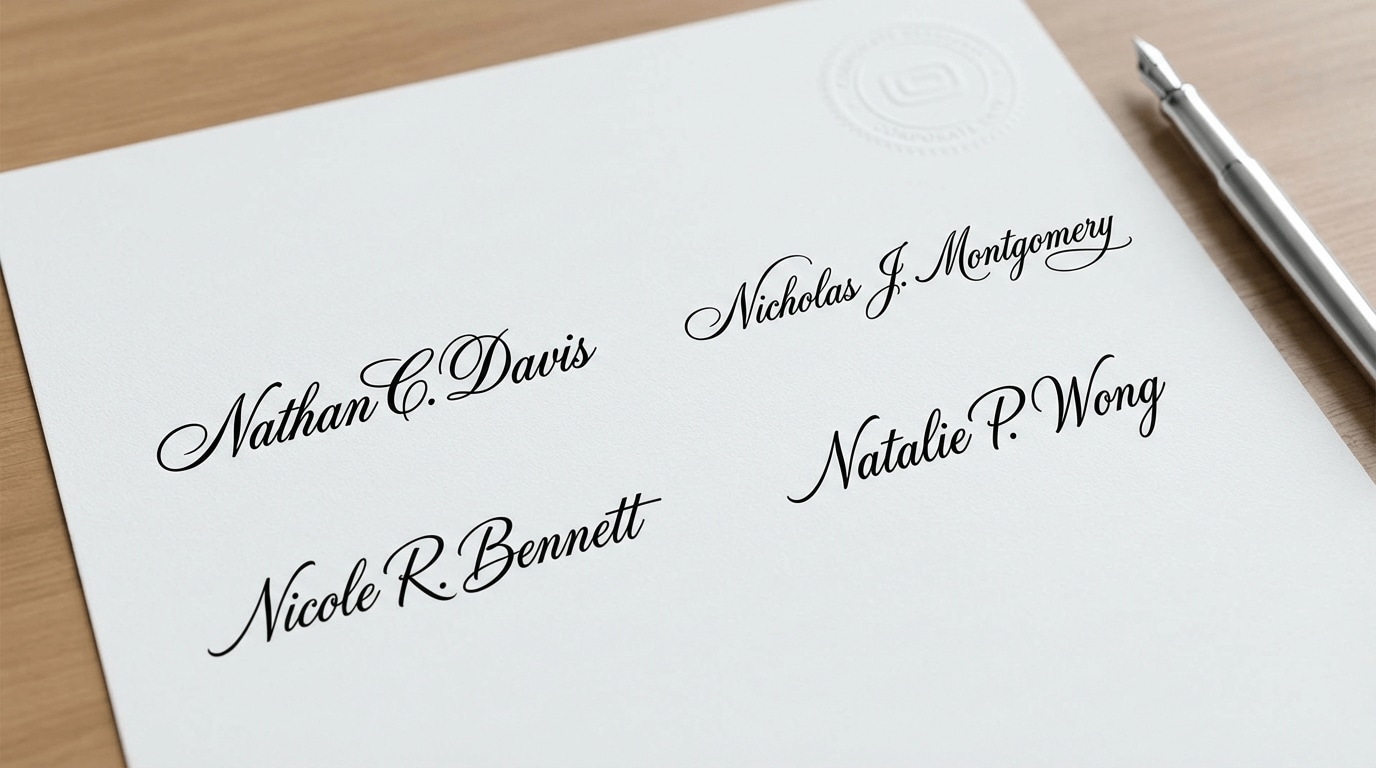 Nathan C. Davis
Nicholas J. Montgomery
Nicole R. Bennett
Natalie P. Wong
CORPORATE
CORPORATE